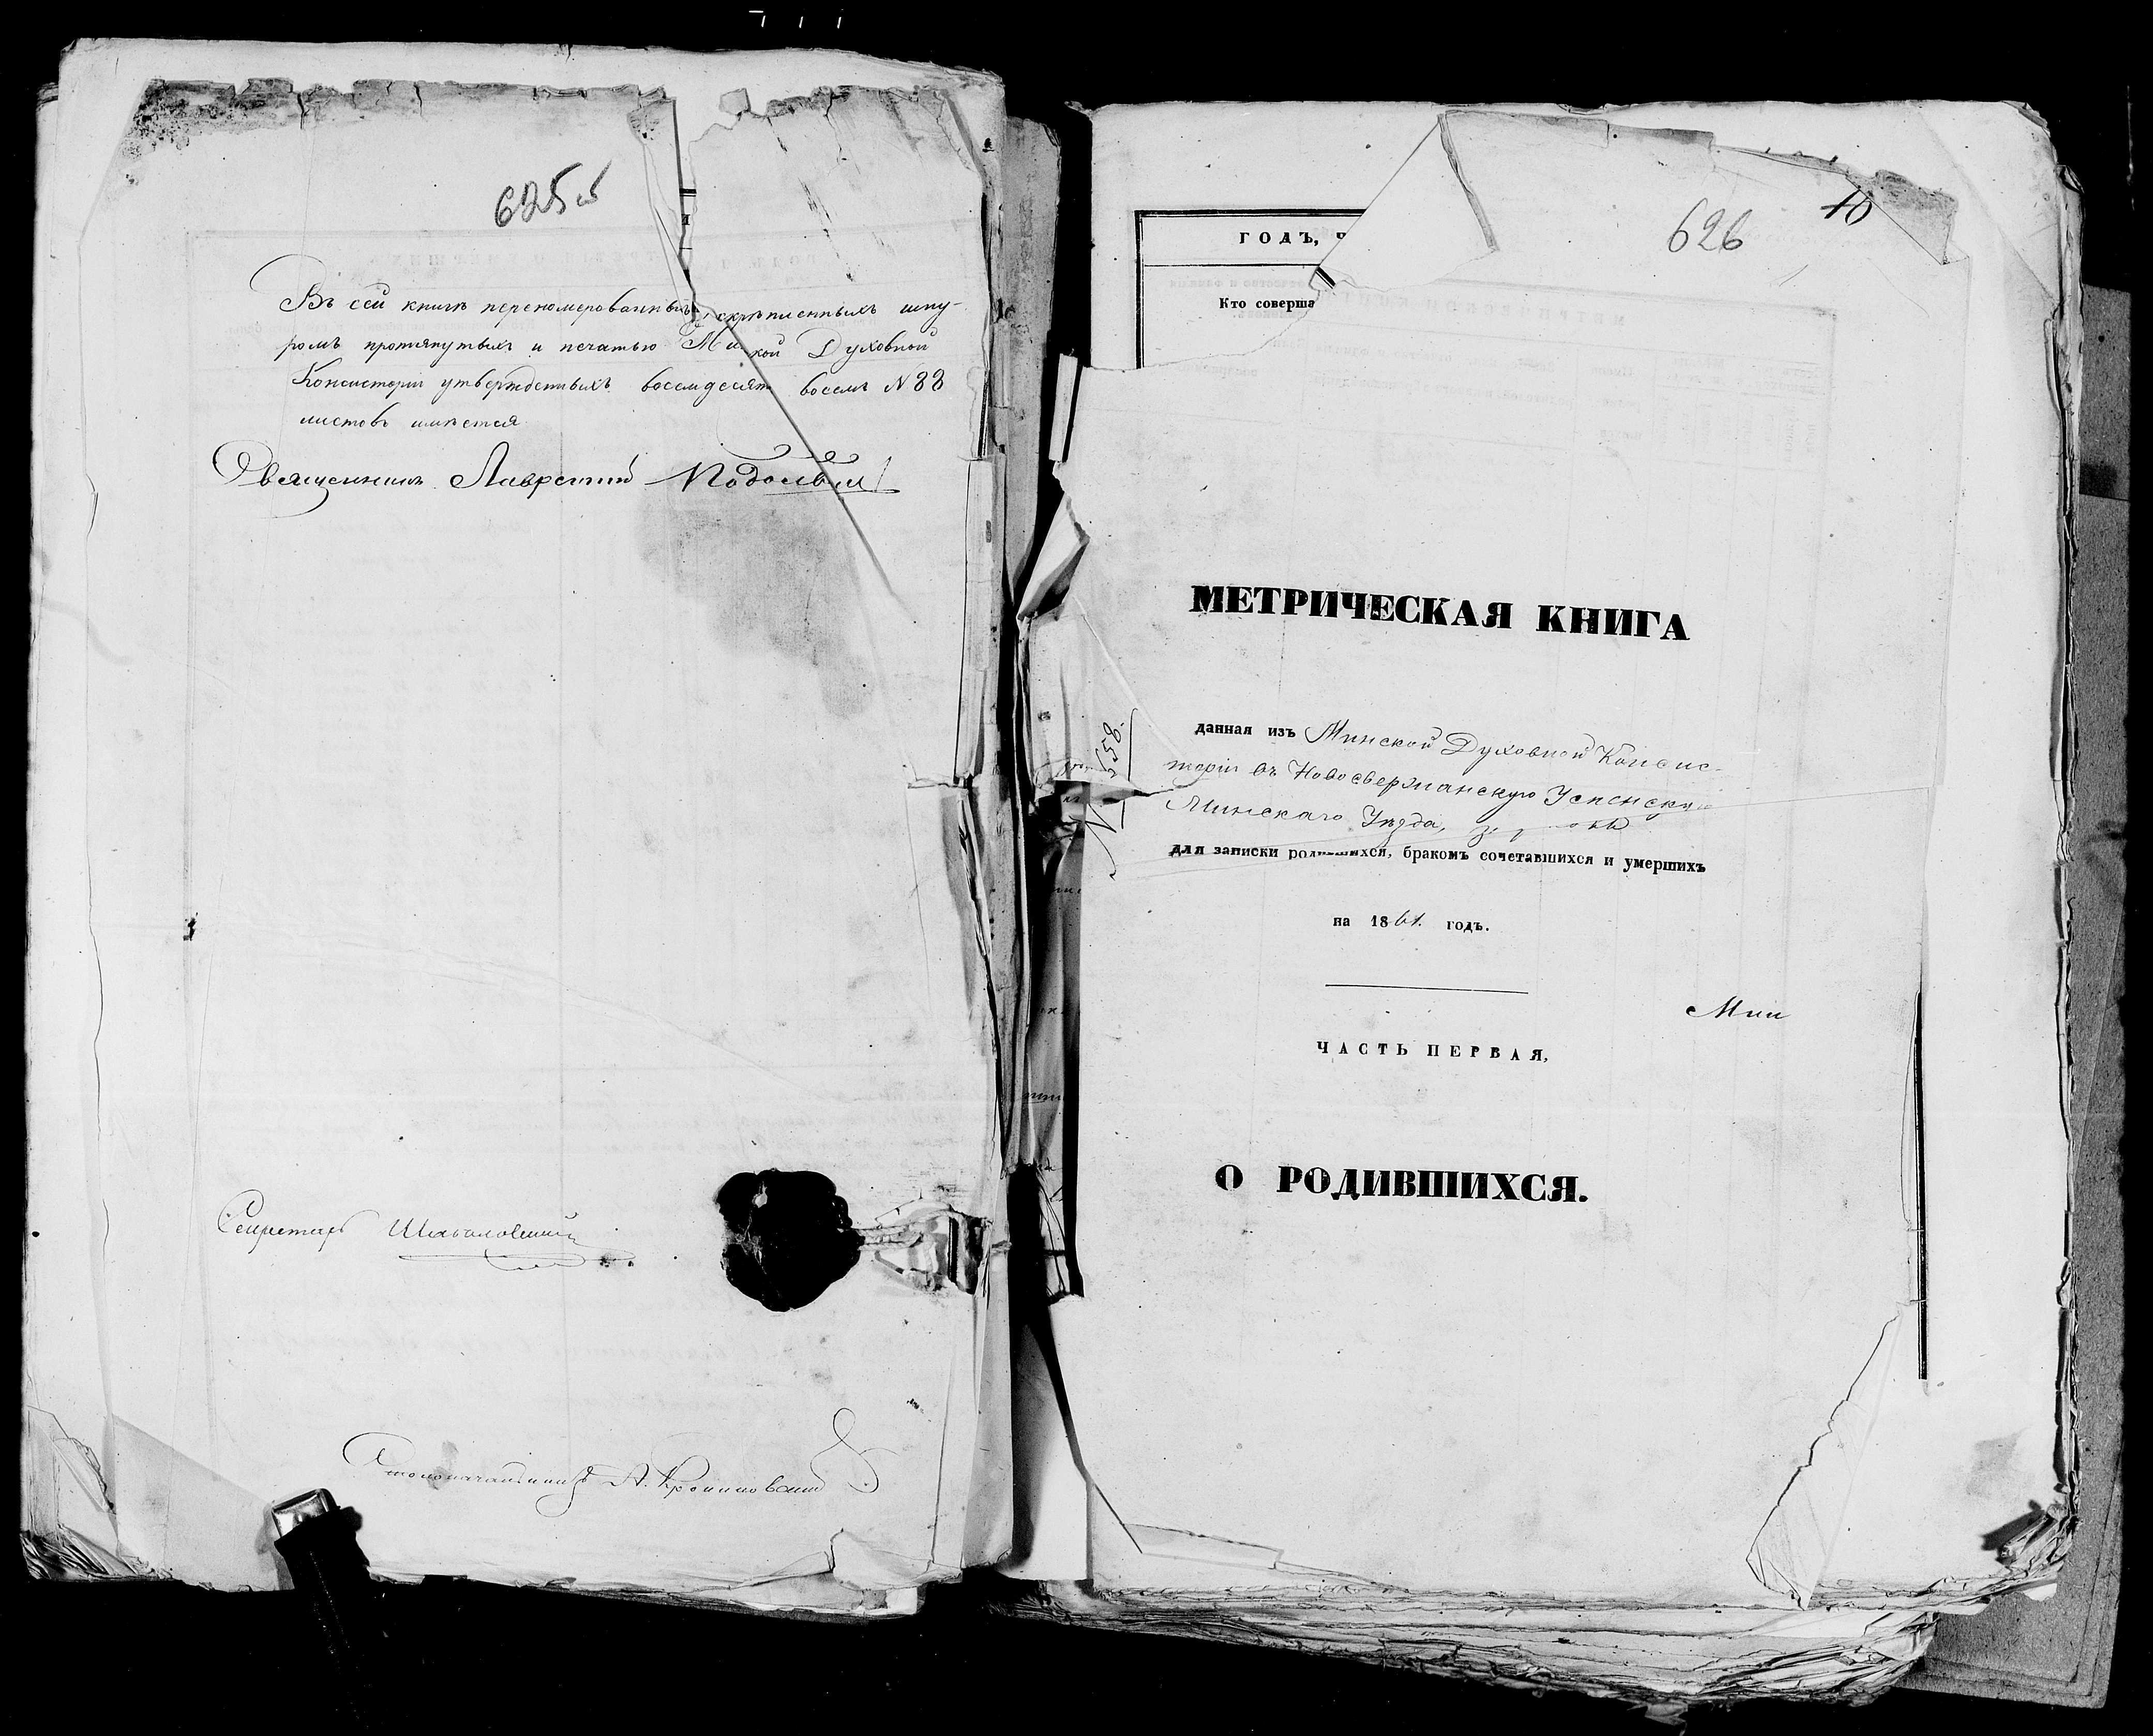 625 об
Въ сей книгѣ перенумерованныхъ, скрѣпленныхъ шну-
ромъ протянутыхъ и печатью Ми кой Духовной
Консисторіи утвержденныхъ восемдесятъ восемь № 88
листовъ имѣется
Священникъ Лаврентій
Секретарь
Столоначальникъ А.
626
10
ГОДЪ,
Кто соверша
МЕТРИЧЕСКАЯ КНИГА
№ 558.
данная изъ Минской Духовной Консис-
торіи въ Новосвержанскую Успенскую
Минскаго Уѣзда,
для записки родившихся, бракомъ сочетавшихся и умершихъ
на 1861. годъ.
Мин
ЧАСТЬ ПЕРВАЯ,
О РОДИВШИХСЯ.